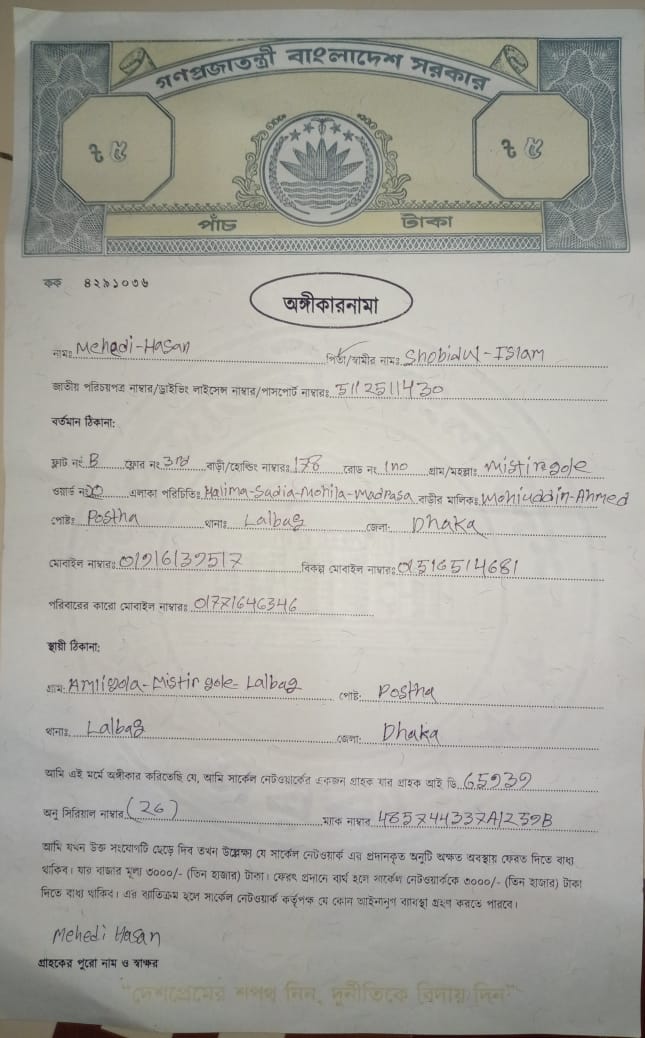 গণপ্রজাতন্ত্রী বাংলাদেশ সরকার
৳ ৫ ৳ ৫
পাঁচ টাকা
কক ৪২৯১০৩৬
অঙ্গীকারনামা
নামঃ Mehedi-Hasan পিতা/স্বামীর নামঃ Shobidul-Islam
জাতীয় পরিচয়পত্র নাম্বার/ড্রাইভিং লাইসেন্স নাম্বার/পাসপোর্ট নাম্বারঃ 5112511430
বর্তমান ঠিকানা:
ফ্লাট নং B ফ্লোর নং 3rd বাড়ী/হোল্ডিং নাম্বারঃ 178 রোড নং no গ্রাম/মহল্লাঃ Mistiregole
ওয়ার্ড নং এলাকা পরিচিতিঃ Halima-Sadia-Mohila-Madrasa বাড়ীর মালিকঃ Mohiuddin-Ahmed
পোষ্টঃ Postha থানাঃ Lalbag জেলা: Dhaka
মোবাইল নাম্বারঃ 01916139517 বিকল্প মোবাইল নাম্বারঃ 01516514681
পরিবারের কারো মোবাইল নাম্বারঃ 01771646346
স্থায়ী ঠিকানা:
গ্রাম: Amligola-Mistir gole-Lalbag পোষ্ট: Postha
থানাঃ Lalbag জেলা: Dhaka
আমি এই মর্মে অঙ্গীকার করিতেছি যে, আমি সার্কেল নেটওয়ার্কের একজন গ্রাহক যার গ্রাহক আই ডি 65939
অনু সিরিয়াল নাম্বার (26) ম্যাক নাম্বার 485744337A1259B
আমি যখন উক্ত সংযোগটি ছেড়ে দিব তখন উল্লেক্ষ্য যে সার্কেল নেটওয়ার্ক এর প্রদানকৃত অনুটি অক্ষত অবস্থায় ফেরত দিতে বাধ্য
থাকিব। যার বাজার মূল্য ৩০০০/- (তিন হাজার) টাকা। ফেরৎ প্রদানে ব্যর্থ হলে সার্কেল নেটওয়ার্ককে ৩০০০/- (তিন হাজার) টাকা
দিতে বাধ্য থাকিব। এর ব্যতিক্রম হলে সার্কেল নেটওয়ার্ক কর্তৃপক্ষ যে কোন আইনানুগ ব্যবস্থা গ্রহণ করতে পারবে।
Mehedi Hasan
গ্রাহকের পুরো নাম ও স্বাক্ষর
"দেশপ্রেমের শপথ নিন, দুর্নীতিকে বিদায় দিন"